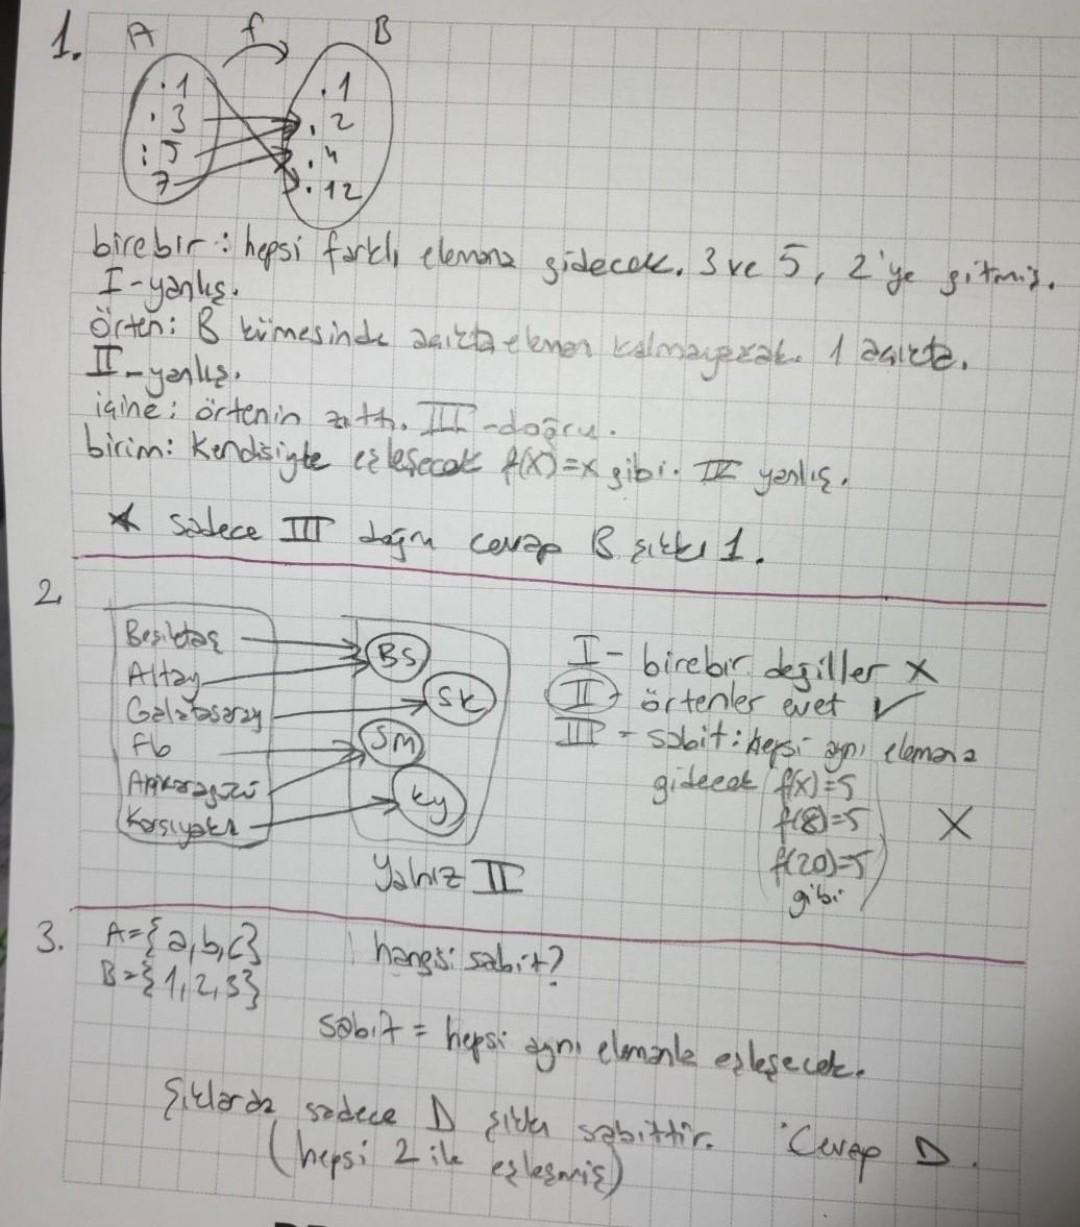 1. A f B
.1 .1
.3 .2
:5 .4
7 .12
birebir: hepsi farklı elemana gidecek. 3 ve 5, 2'ye gitmiş.
I-yanlış.
Örten: B kümesinde açıkta eleman kalmayacak. 1 açıkta.
II-yanlış.
içine: örtenin zıttı. III-doğru.
birim: Kendisiyle eşleşecek f(x)=x gibi. IV yanlış.
* sadece III doğru cevap B şıkkı 1.
2.
Beşiktaş BS
Altay
Galatasaray SK
Fb SM
Ankaragücü
Karşıyaka ky
I - birebir değiller X
II - örtenler evet ✓
III - sabit: hepsi aynı elemana
gidecek f(x)=5
f(8)=5 X
f(20)=5
gibi
Yalnız II
3. A={a,b,c} hangisi sabit?
B={1,2,3}
sabit = hepsi aynı elemanla eşleşecek.
Şıklarda sadece D şıkkı sabittir. Cevap D.
(hepsi 2 ile eşleşmiş)